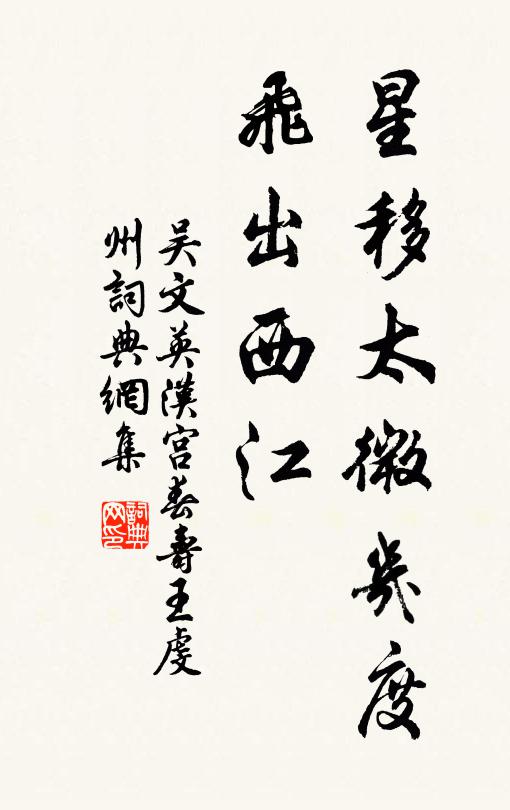 星移太微幾度
飛出西江
吴文英漢宮春壽王虔
州詞典網集
詞典
网印